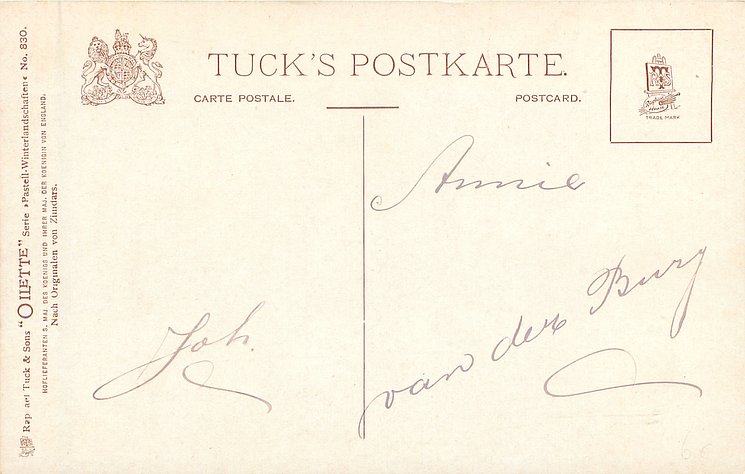 TUCK'S POSTKARTE.
CARTE POSTALE.
POSTCARD.
TRADE MARK
Annie
van der Burg
Joh.
Raphael Tuck & Sons "OILETTE" Serie »Pastell-Winterlandschaften« No. 830.
HOFLIEFERANTEN S. MAJ. DES KOENIGS UND IHRER MAJ. DER KOENIGIN VON ENGLAND.
Nach Originalen von Zimdars.